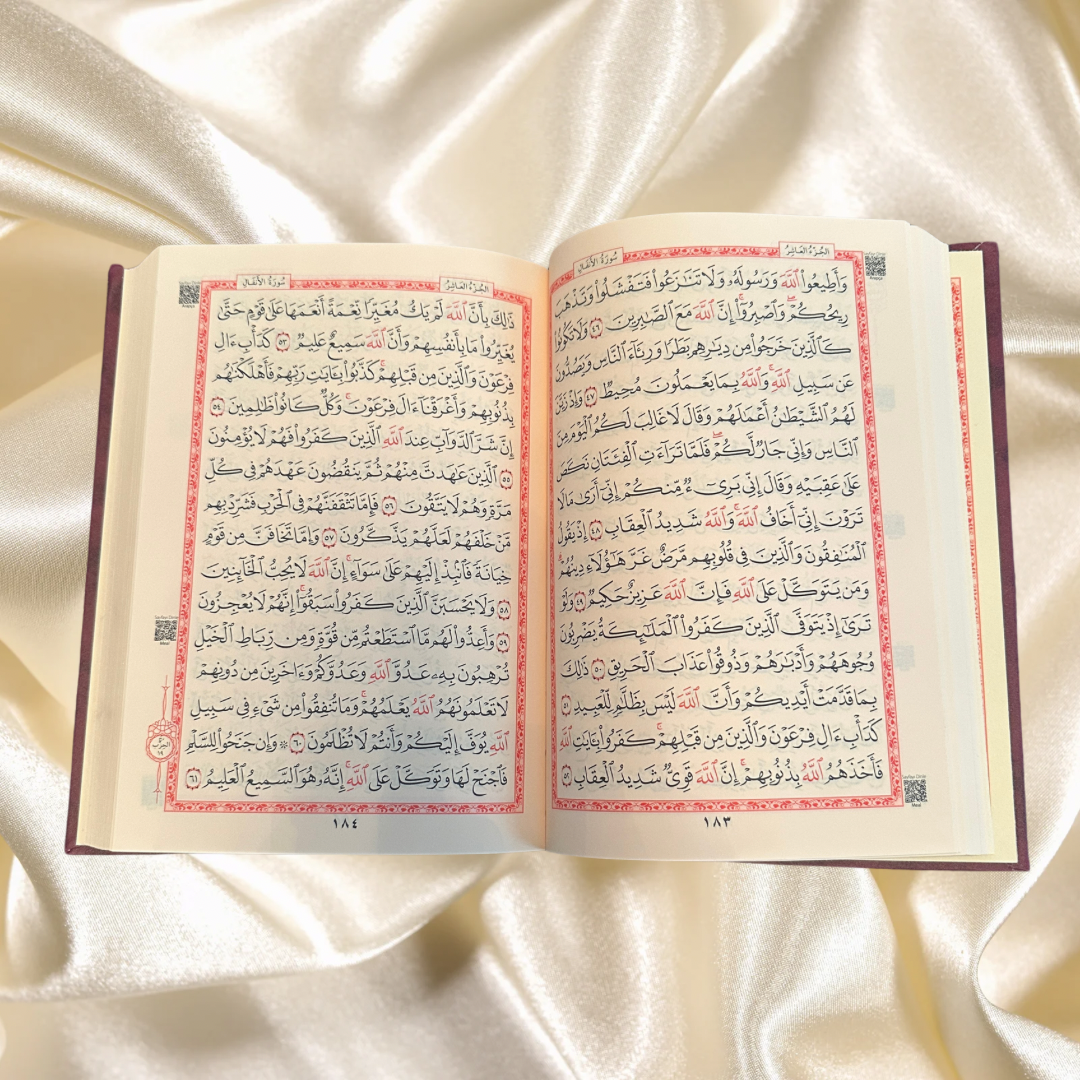 سُورَةُ الأَنفَالِ
الجُزءُ العَاشِرُ
وَأَطِيعُواْ ٱللَّهَ وَرَسُولَهُۥ وَلَا تَنَٰزَعُواْ فَتَفۡشَلُواْ وَتَذۡهَبَ
رِيحُكُمۡۖ وَٱصۡبِرُوٓاْۚ إِنَّ ٱللَّهَ مَعَ ٱلصَّٰبِرِينَ ٤٦ وَلَا تَكُونُواْ
كَٱلَّذِينَ خَرَجُواْ مِن دِيَٰرِهِم بَطَرٗا وَرِئَآءَ ٱلنَّاسِ وَيَصُدُّونَ
عَن سَبِيلِ ٱللَّهِۚ وَٱللَّهُ بِمَا يَعۡمَلُونَ مُحِيطٞ ٤٧ وَإِذۡ زَيَّنَ
لَهُمُ ٱلشَّيۡطَٰنُ أَعۡمَٰلَهُمۡ وَقَالَ لَا غَالِبَ لَكُمُ ٱلۡيَوۡمَ مِنَ
ٱلنَّاسِ وَإِنِّي جَارٞ لَّكُمۡۖ فَلَمَّا تَرَآءَتِ ٱلۡفِئَتَانِ نَكَصَ
عَلَىٰ عَقِبَيۡهِ وَقَالَ إِنِّي بَرِيٓءٞ مِّنكُمۡ إِنِّيٓ أَرَىٰ مَا لَا
تَرَوۡنَ إِنِّيٓ أَخَافُ ٱللَّهَۚ وَٱللَّهُ شَدِيدُ ٱلۡعِقَابِ ٤٨ إِذۡ يَقُولُ
ٱلۡمُنَٰفِقُونَ وَٱلَّذِينَ فِي قُلُوبِهِم مَّرَضٌ غَرَّ هَٰٓؤُلَآءِ دِينُهُمۡۗ
وَمَن يَتَوَكَّلۡ عَلَى ٱللَّهِ فَإِنَّ ٱللَّهَ عَزِيزٌ حَكِيمٞ ٤٩ وَلَوۡ
تَرَىٰٓ إِذۡ يَتَوَفَّى ٱلَّذِينَ كَفَرُواْ ٱلۡمَلَٰٓئِكَةُ يَضۡرِبُونَ
وُجُوهَهُمۡ وَأَدۡبَٰرَهُمۡ وَذُوقُواْ عَذَابَ ٱلۡحَرِيقِ ٥٠ ذَٰلِكَ
بِمَا قَدَّمَتۡ أَيۡدِيكُمۡ وَأَنَّ ٱللَّهَ لَيۡسَ بِظَلَّٰمٖ لِّلۡعَبِيدِ ٥١
كَدَأۡبِ ءَالِ فِرۡعَوۡنَ وَٱلَّذِينَ مِن قَبۡلِهِمۡۚ كَفَرُواْ بِـَٔايَٰتِ ٱللَّهِ
فَأَخَذَهُمُ ٱللَّهُ بِذُنُوبِهِمۡۚ إِنَّ ٱللَّهَ قَوِيّٞ شَدِيدُ ٱلۡعِقَابِ ٥٢
١٨٣
سُورَةُ الأَنفَالِ
الجُزءُ العَاشِرُ
ذَٰلِكَ بِأَنَّ ٱللَّهَ لَمۡ يَكُ مُغَيِّرٗا نِّعۡمَةً أَنۡعَمَهَا عَلَىٰ قَوۡمٍ حَتَّىٰ
يُغَيِّرُواْ مَا بِأَنفُسِهِمۡ وَأَنَّ ٱللَّهَ سَمِيعٌ عَلِيمٞ ٥٣ كَدَأۡبِ ءَالِ
فِرۡعَوۡنَ وَٱلَّذِينَ مِن قَبۡلِهِمۡۚ كَذَّبُواْ بِـَٔايَٰتِ رَبِّهِمۡ فَأَهۡلَكۡنَٰهُم
بِذُنُوبِهِمۡ وَأَغۡرَقۡنَآ ءَالَ فِرۡعَوۡنَۚ وَكُلّٞ كَانُواْ ظَٰلِمِينَ ٥٤
إِنَّ شَرَّ ٱلدَّوَآبِّ عِندَ ٱللَّهِ ٱلَّذِينَ كَفَرُواْ فَهُمۡ لَا يُؤۡمِنُونَ
٥٥ ٱلَّذِينَ عَٰهَدتَّ مِنۡهُمۡ ثُمَّ يَنقُضُونَ عَهۡدَهُمۡ فِي كُلِّ
مَرَّةٖ وَهُمۡ لَا يَتَّقُونَ ٥٦ فَإِمَّا تَثۡقَفَنَّهُمۡ فِي ٱلۡحَرۡبِ فَشَرِّدۡ بِهِم
مَّنۡ خَلۡفَهُمۡ لَعَلَّهُمۡ يَذَّكَّرُونَ ٥٧ وَإِمَّا تَخَافَنَّ مِن قَوۡمٍ
خِيَانَةٗ فَٱنۢبِذۡ إِلَيۡهِمۡ عَلَىٰ سَوَآءٍۚ إِنَّ ٱللَّهَ لَا يُحِبُّ ٱلۡخَآئِنِينَ
٥٨ وَلَا يَحۡسَبَنَّ ٱلَّذِينَ كَفَرُواْ سَبَقُوٓاْۚ إِنَّهُمۡ لَا يُعۡجِزُونَ
٥٩ وَأَعِدُّواْ لَهُم مَّا ٱسۡتَطَعۡتُم مِّن قُوَّةٖ وَمِن رِّبَاطِ ٱلۡخَيۡلِ
تُرۡهِبُونَ بِهِۦ عَدُوَّ ٱللَّهِ وَعَدُوَّكُمۡ وَءَاخَرِينَ مِن دُونِهِمۡ
لَا تَعۡلَمُونَهُمُ ٱللَّهُ يَعۡلَمُهُمۡۚ وَمَا تُنفِقُواْ مِن شَيۡءٖ فِي سَبِيلِ
ٱللَّهِ يُوَفَّ إِلَيۡكُمۡ وَأَنتُمۡ لَا تُظۡلَمُونَ ٦٠ ۞ وَإِن جَنَحُواْ لِلسَّلۡمِ
فَٱجۡنَحۡ لَهَا وَتَوَكَّلۡ عَلَى ٱللَّهِۚ إِنَّهُۥ هُوَ ٱلسَّمِيعُ ٱلۡعَلِيمُ ٦١
١٨٤